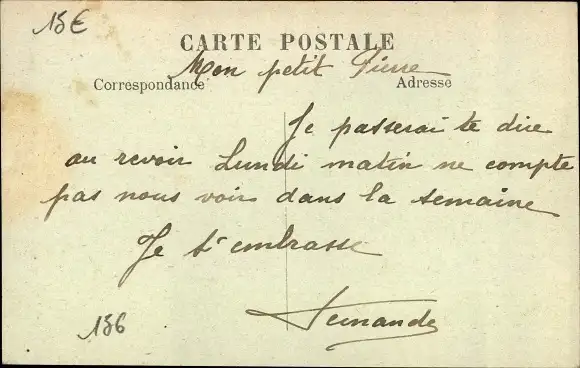 15€
CARTE POSTALE
Mon petit Pierre
Correspondance Adresse
Je passerai te dire
au revoir Lundi matin ne compte
pas nous voir dans la semaine
Je t'embrasse
Fernande
156